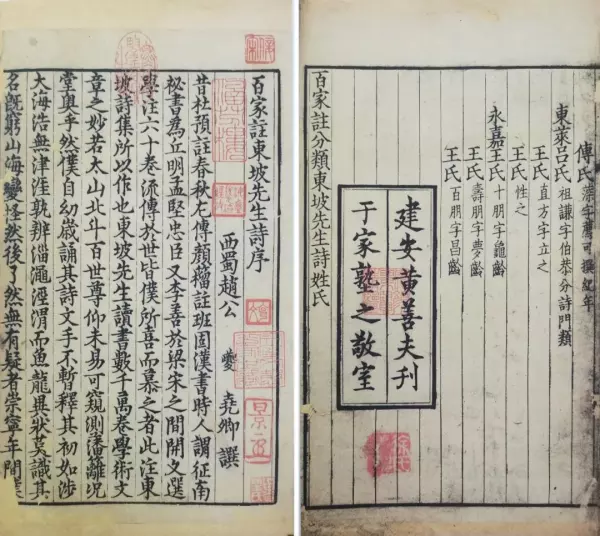 百家註東坡先生詩序
西蜀趙公 夔 堯卿 撰
昔杜預註春秋左傳顏籀註班固漢書時人謂征南
祕書為丘明孟堅忠臣又李善於梁宋之間開文選
學注六十卷流傳於世皆僕所喜而慕之者此注東
坡詩集所以作也東坡先生讀書數千萬卷學術文
章之妙若太山北斗百世尊仰未易可窺測藩籬況
堂奧乎然僕自幼歲誦其詩文手不暫釋其初如涉
大海浩無津涯孰辨淄澠涇渭而魚龍異狀莫識其
名既窮山海變怪然後了然無有疑者崇寧年間僕
傅氏 藻字薦可撰紀年
東萊呂氏 祖謙字伯恭分詩門類
王氏 直方字立之
王氏 性之
永嘉
王氏 十朋字龜齡
王氏 壽朋字夢齡
王氏 百朋字昌齡
建安黃善夫刊
于家塾之敬室
百家註分類東坡先生詩姓氏